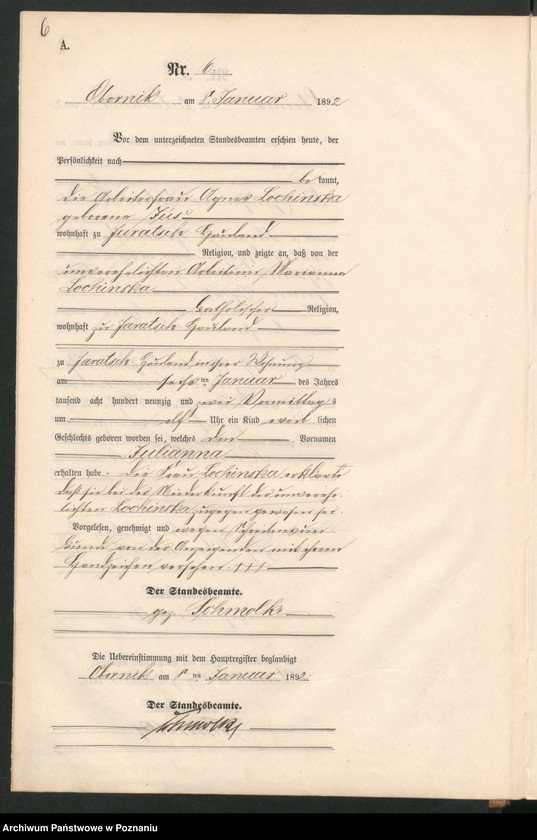 6
A.
Nr. 6.
Obornik am 8. Januar 1892
Vor dem unterzeichneten Standesbeamten erschien heute, der
Persönlichkeit nach
be kannt,
die Arbeiterfrau Agnes Lochinska
geborene
wohnhaft zu Jaratsch Hauland
Religion, und zeigte an, daß von der
unverehelichten Arbeiterin Marianna
Lochinska
katholischer Religion,
wohnhaft zu Jaratsch Hauland
zu Jaratsch Hauland in ihrer Wohnung
am sechsten Januar des Jahres
tausend acht hundert neunzig und zwei Vormittags
um elf Uhr ein Kind weib lichen
Geschlechts geboren worden sei, welches den Vornamen
Julianna
erhalten habe. Die Frau Lochinska erklärte
daß sie bei der Niederkunft der unverehe-
lichten Lochinska zugegen gewesen sei.
Vorgelesen, genehmigt und wegen Schreibensun-
kunde von der Anzeigenden mit ihrem
Handzeichen versehen. +++
Der Standesbeamte.
gez. Schmolke
Die Uebereinstimmung mit dem Hauptregister beglaubigt
Obornik am 8ten Januar 1892.
Der Standesbeamte.
Schmolke
Archiwum Państwowe w Poznaniu